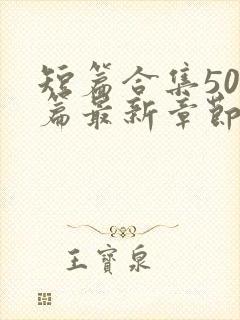 短篇合集50
篇最新章節
王寶泉